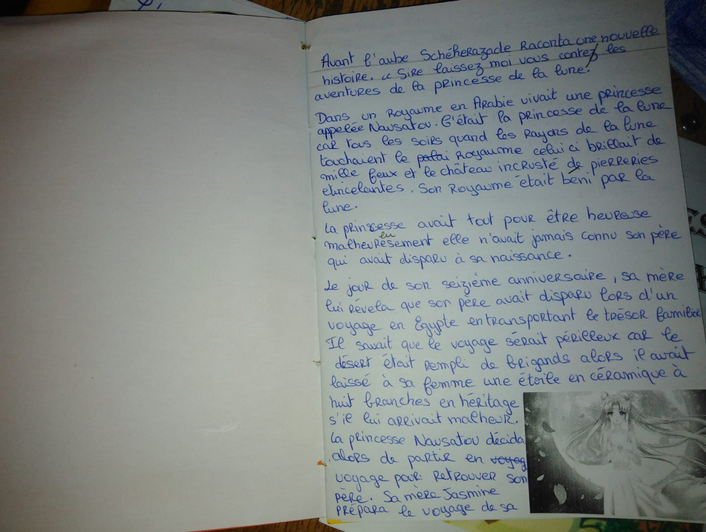 Avant l'aube Schéherazade Raconta une nouvelle
histoire. « Sire laissez moi vous conter les
aventures de la princesse de la lune.
Dans un Royaume en Arabie vivait une princesse
appelée Nausatou. C'était la princesse de la lune
car tous les soirs quand les Rayons de la lune
touchaient le palai Royaume celui ci brillait de
mille feux et le château incrusté de pierreries
etincelantes. Son Royaume était béni par la
lune.
La princesse avait tout pour être heureuse
malheureusement elle n'avait jamais connu son père
qui avait disparu à sa naissance.
Le jour de son seizième anniversaire, sa mère
lui Révela que son père avait disparu lors d'un
voyage en Egypte en transportant le trésor familial
Il savait que le voyage sérait périlleux car le
désert était Rempli de brigands alors il avait
laissé à sa femme une étoile en céramique à
huit branches en héritage
s'il lui arrivait malheur.
La princesse Nausatou décida
alors de partir en voyag
voyage pour Retrouver son
Père. Sa mère Jasmine
PRépara le voyage de sa